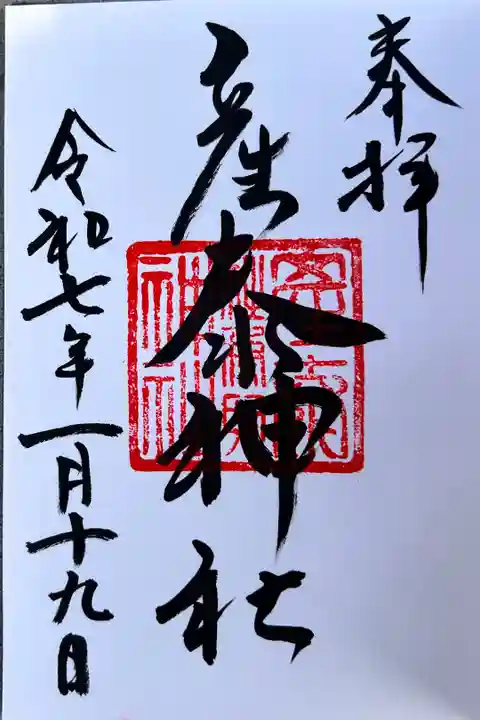 奉拝
産泰神社
令和七年一月十九日